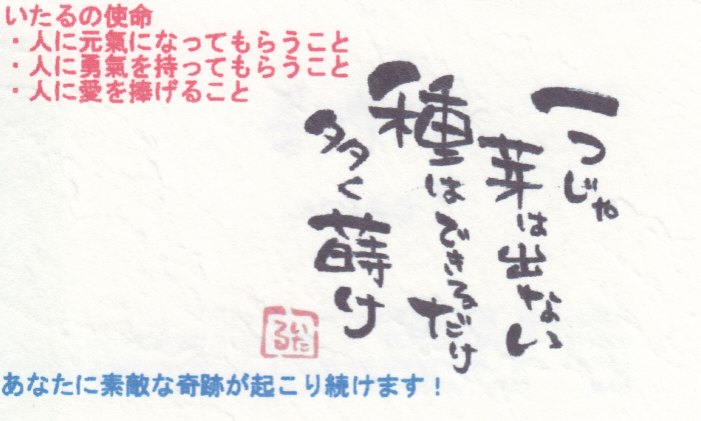 いたるの使命
・人に元氣になってもらうこと
・人に勇氣を持ってもらうこと
・人に愛を捧げること
一つじゃ
芽は出ない
種はできるだけ
多く蒔け
いたる
あなたに素敵な奇跡が起こり続けます！